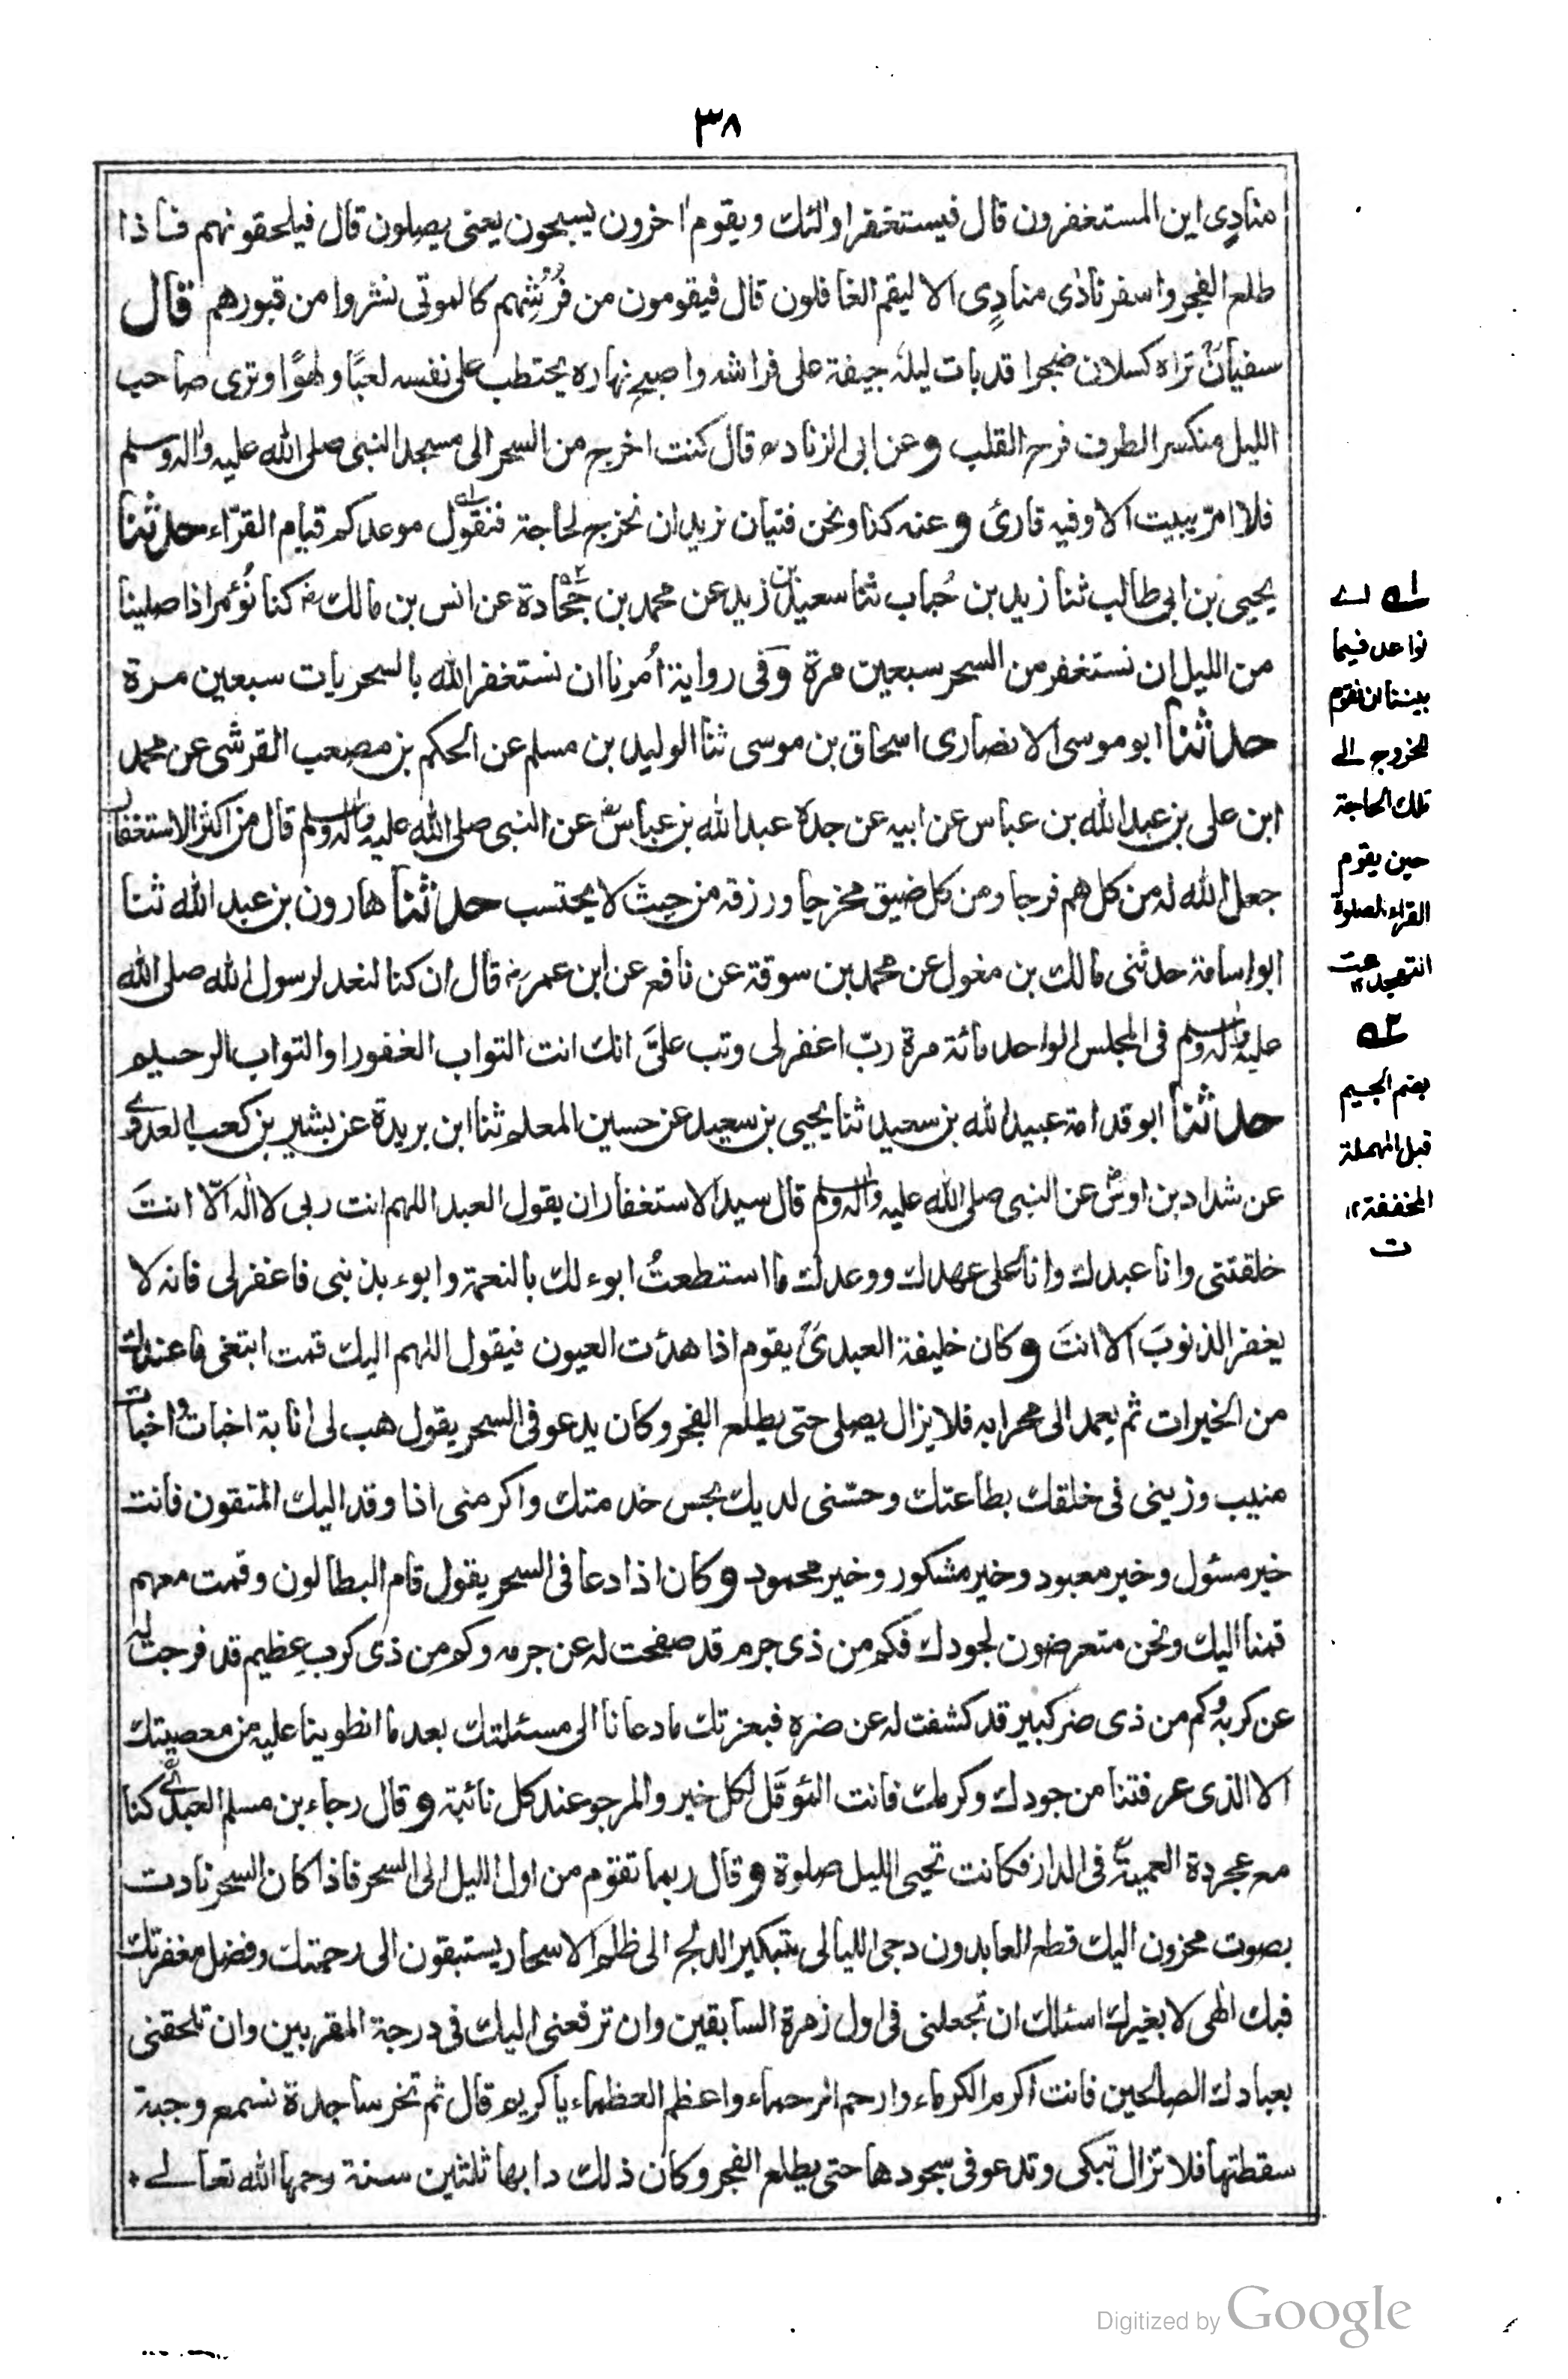 ٣٨
منادٍي اين المستغفرون قال فيستغفر اولئك ويقوم اخرون يسبحون يعنى يصلون قال فيلحقونهم فاذا
طلع الفجر واسفر نادٰى منادٍى الا ليقم الغافلون قال فيقومون من فُرُشِهم كالموتى نشروا من قبورهم قال
سفيانؒ تراه كسلان ضجرا قد بات ليله جيفة على فراشه واصبح نهاره يحتطب على نفسه لعبًا ولهوًا وترى صاحب
الليل منكسر الطرف فرح القلب وعن ابى الزناد قال كنت اخرج من السحر الى مسجد النبى صلى الله عليه واٰله وسلم
فلا امرّ ببيت الا وفيه قارئ وعنه كنا ونحن فتيان نريد ان نخرج لحاجة فنقول موعدكم قيام القرّاء حدثنا
يحيى بن ابى طالب ثنا زيد بن حُباب ثنا سعيد بن زيد عن محمد بن جُحادة عن انس بن مالك كنا نُؤمر اذا صلينا
من الليل ان نستغفر من السحر سبعين مرة وَفى رواية اُمرنا ان نستغفر الله بالسحريات سبعين مرة
حدثنا ابو موسى الانصارى اسحاق بن موسى ثنا الوليد بن مسلم عن الحكم بن مصعب القرشى عن محمد
ابن على بن عبد الله بن عباس عن ابيه عن جده عبد الله بن عباس عن النبى صلى الله عليه واٰله وسلم قال من اكثر الاستغفار
جعل الله له من كل هم فرجا ومن كل ضيق مخرجا ورزقه من حيث لا يحتسب حدثنا هارون بن عبد الله ثنا
ابو اسامة حدثنى مالك بن مغول عن محمد بن سوقة عن نافع عن ابن عمر قال ان كنا لنعد لرسول الله صلى الله
عليه واٰله وسلم فى المجلس الواحد مائة مرة ربّ اغفر لى وتب علىَّ انك انت التواب الغفور او التواب الرحيم
حدثنا ابو قدامة عبيد الله بن سعيد ثنا يحيى بن سعيد عن حسين المعلم ثنا ابن بريدة عن بشير بن كعب العدوى
عن شداد بن اوس عن النبى صلى الله عليه واٰله وسلم قال سيد الاستغفار ان يقول العبد اللهم انت ربى لا الٰه الّا انتَ
خلقتنى وانا عبدك وانا على عهدك ووعدك ما استطعتُ ابوء لك بالنعمة وابوء بذنبى فاغفر لى فانه لا
يغفر الذنوبَ الا انتَ وكان خليفة العبدىؒ يقوم اذا هدئت العيون فيقول اللهم اليك قمت ابتغى ما عندك
من الخيرات ثم يعمد الى محرابه فلا يزال يصلى حتى يطلع الفجر وكان يدعو فى السحر يقول هب لى انابة اخبات واخبات
منيب وزينى فى خلقك بطاعتك وحسّنى لديك بحسن خدمتك واكرمنى اذا وفد اليك المتقون فانت
خير مسئول وخير معبود وخير مشكور وخير محمود وكان اذا دعا فى السحر يقول قام البطالون وقمت معهم
قمنا اليك ونحن متعرضون لجودك فكم من ذى جرم قد صفحت له عن جرمه وكم من ذى كرب عظيم قد فرجت له
عن كربه وكم من ذى ضر كبير قد كشفت له عن ضره فبعزتك ما دعانا الى مسئلتك بعد ما انطوينا عليه من معصيتك
الا الذى عرفتنا من جودك وكرمك فانت المؤمَّل لكل خير والمرجو عند كل نائبة وقال رجاء بن مسلم العبدى كنا
مع عجردة العمية فى الدار فكانت تحيى الليل صلوة وقال ربما تقوم من اول الليل الى السحر فاذا كان السحر نادت
بصوت محزون اليك قطع العابدون دجى الليالى بتبكير الدلج الى ظلم الاسحار يستبقون الى رحمتك وفضل مغفرتك
فبك الٰهى لا بغيرك اسئلك ان تجعلنى فى اول زمرة السابقين وان ترفعنى اليك فى درجة المقربين وان تلحقنى
بعبادك الصالحين فانت اكرم الكرماء وارحم الرحماء واعظم العظماء يا كريم قال ثم تخر ساجدة نسمع وجبة
سقطتها فلا تزال تبكى وتدعو فى سجودها حتى يطلع الفجر وكان ذلك دابها ثلثين سنة رحمها الله تعالے
١ اے
نواعد فيما
بيننا ان نقوم
للخروج الے
تلك الحاجة
حين يقوم
القراء لصلوة
التهجد ١٢
٢
بضم الجيم
قبل المهملة
المخففة ١٢
ت
Digitized by Google